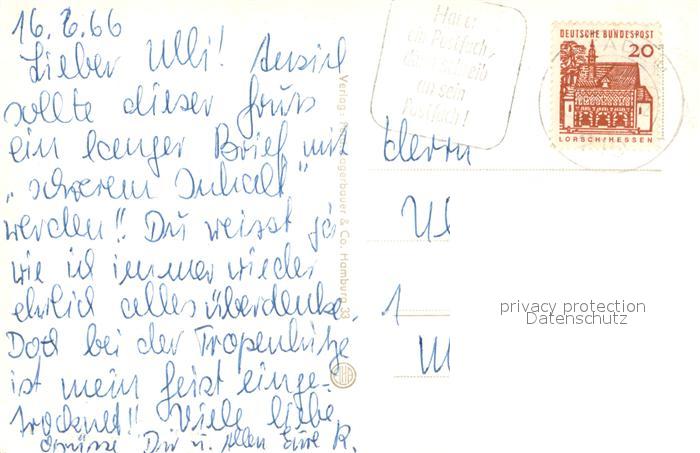 16.6.66
Lieber Ulli! Ansich
sollte dieser Gruss
ein langer Brief mit
"schwerem Inhalt"
werden!! Du weisst ja
wie ich immer wieder
ehrlich alles überdenke.
Doch bei der Tropenhitze
ist mein Geist einge-
trocknet!! Viele liebe
Grüsse Dir u. Allen Eure R.
Verlag: & Co. Hamburg 33
Hat er
ein Postfach,
dann schreib
an sein
Postfach!
DEUTSCHE BUNDESPOST
20
LORSCH/HESSEN
Herrn
Ul
1
privacy protection
Datenschutz
M